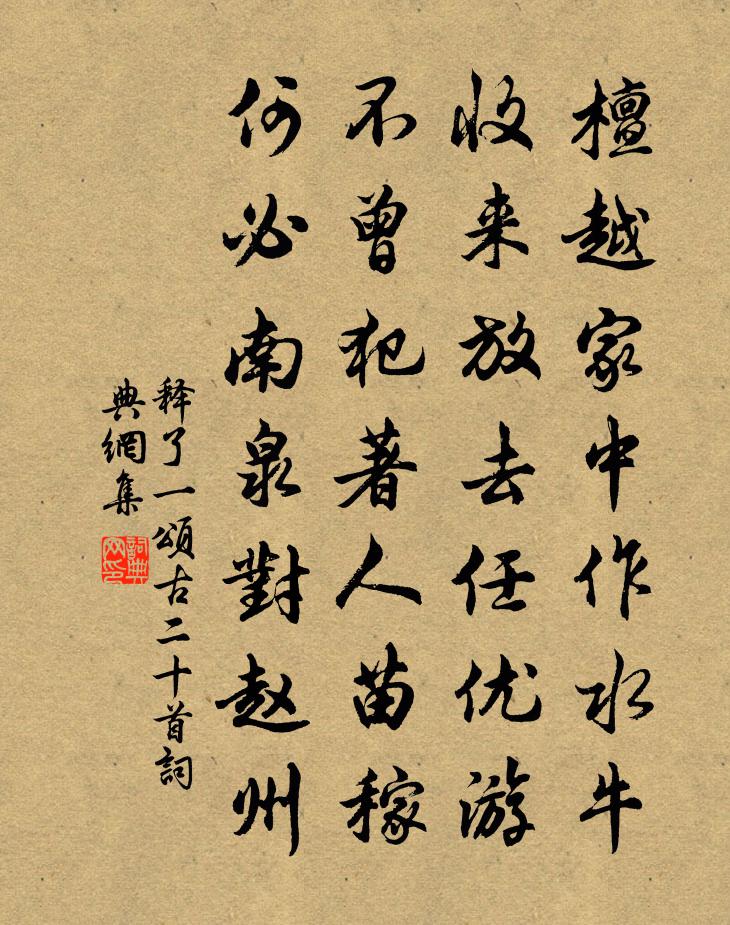 檀越家中作水牛
收来放去任优游
不曾犯著人苗稼
何必南泉對赵州
释了一頌古二十首詞
典網集
詞典
网印